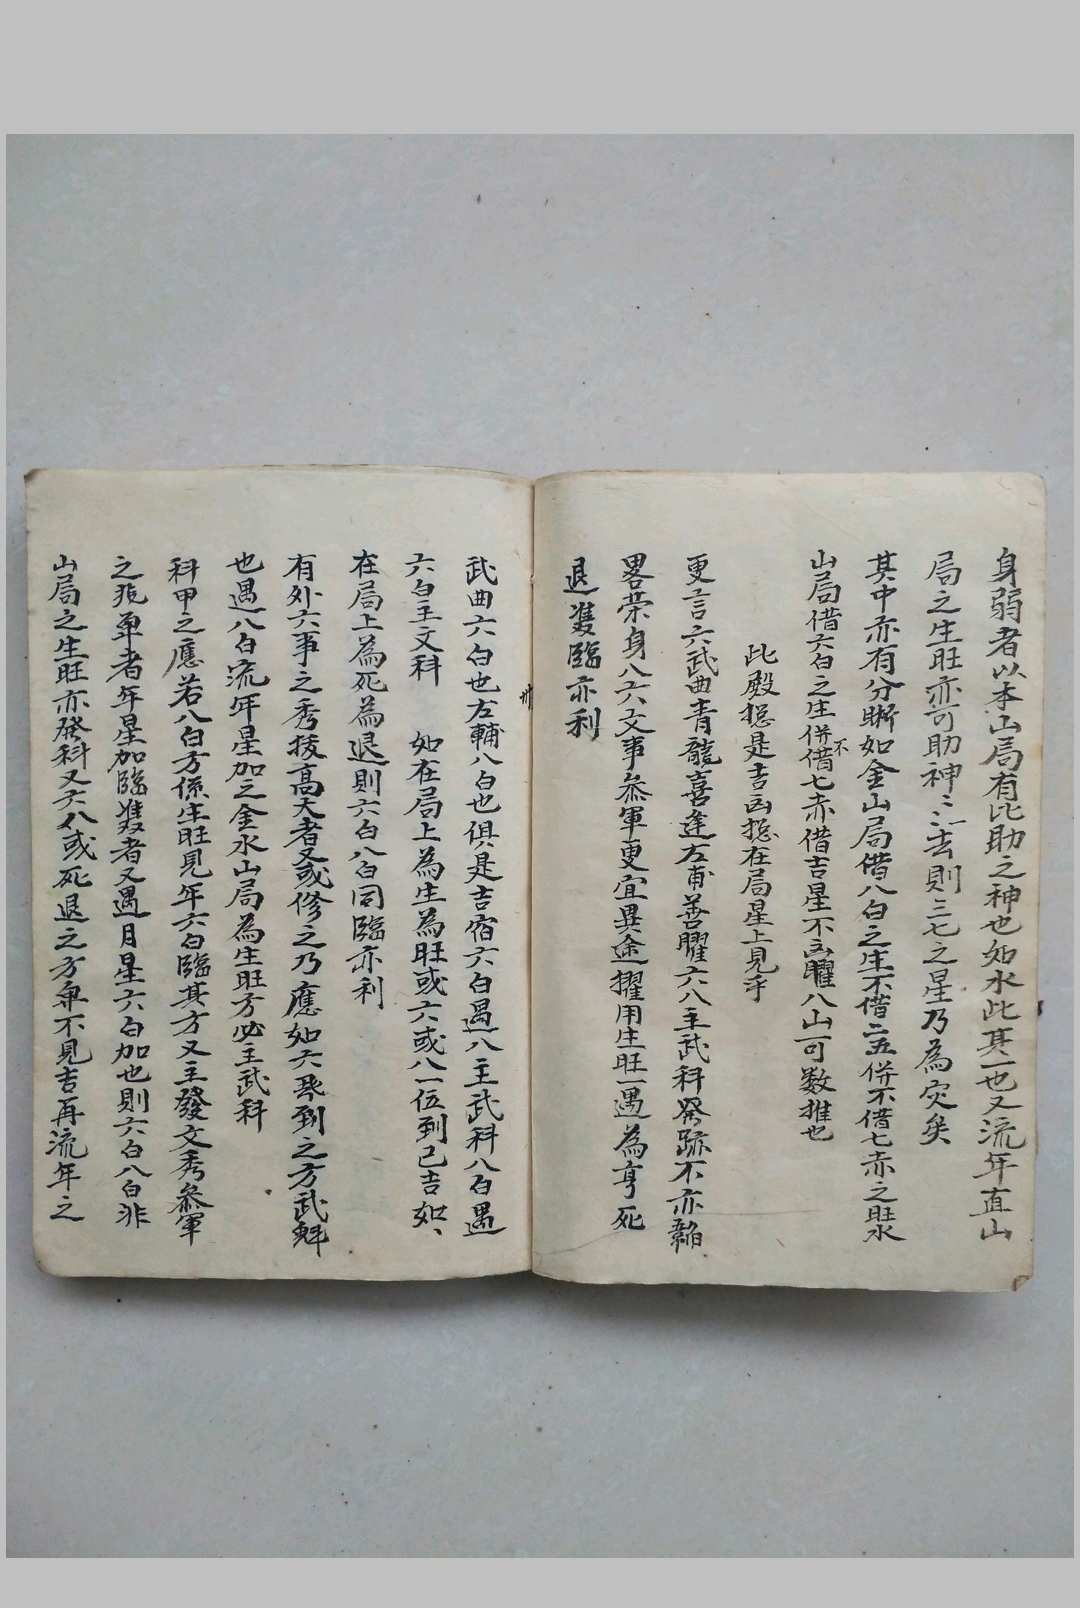 身弱者以本山局有比助之神也如水此其一也又流年直山
局之生旺亦可助神々去則三七之星乃為灾矣
其中亦有分晰如金山局借八白之生不借二五併不借七赤之旺水
山局借六白之生併不借七赤借吉星不凶曜八山一可数推也
此殿摠是吉凶摠在局星上見乎
更言六武曲青龍喜逢左甫善曜六八主武科發跡不亦韜
畧荣身八六文事叅軍更宜異途擢用生旺一遇為亨死
退雙臨亦利
卅
武曲六白也左輔八白也俱是吉宿六白遇八主武科八白遇
六白主文科 如在局上為生為旺或六或八一伍到已吉如、
在局上為死為退則六白八白同臨亦利
有外六事之秀拔高大者又或修之乃應如六飛到之方武魁
也遇八白流年星加之金水山局為生旺方必主武科
科甲之應若八白方係生旺見年六白臨其方又主發文秀叅軍
之兆單者年星加臨雙者又遇月星六白加也則六白八白非
山局之生旺亦發科又六八或死退之方弗不見吉再流年之